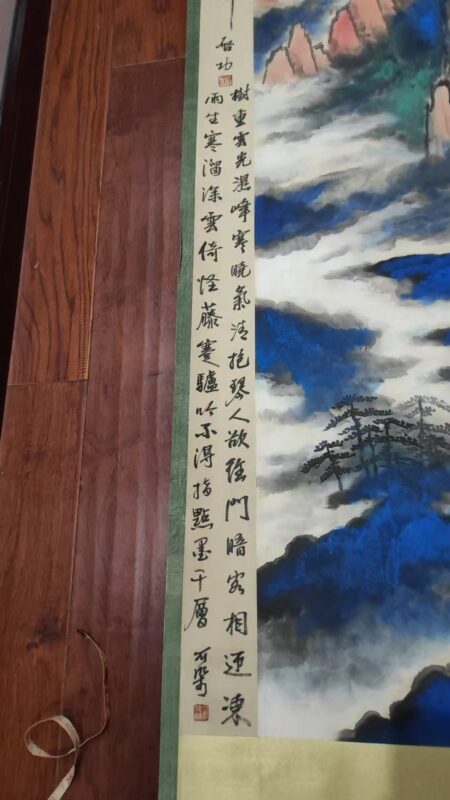 启功
樹重雲光濕峰寒曉氣清抱琴人欲門暗客相迎凍
雨生寒溜深雲倚怪藤蹇驢吟不得指點墨千層